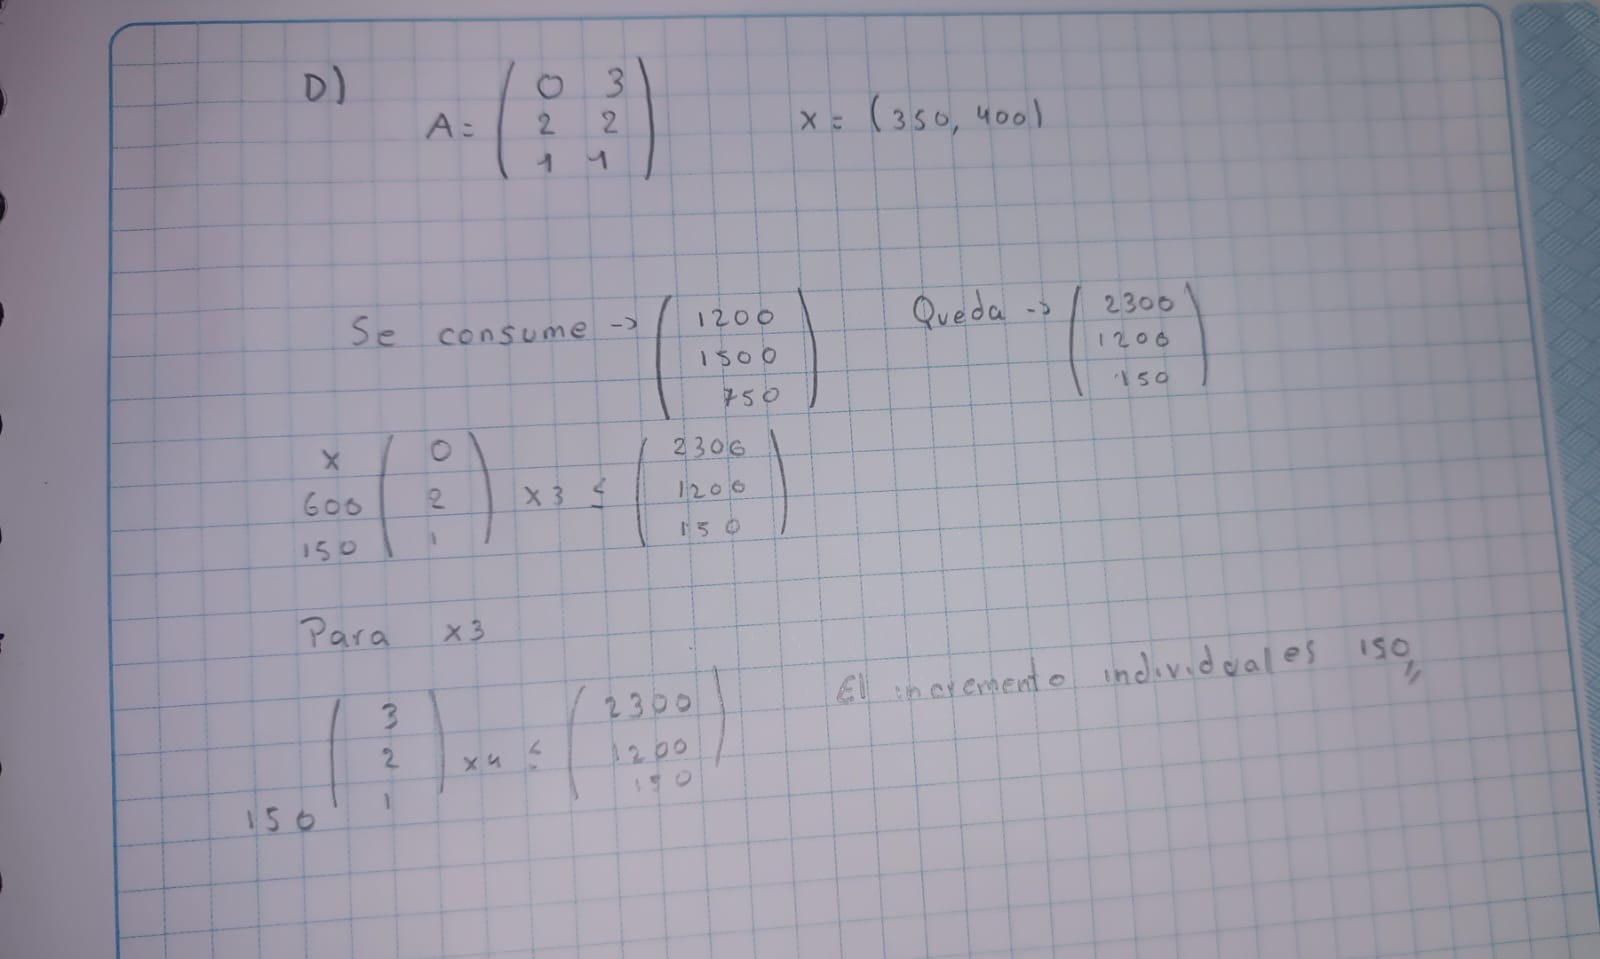 D)
A = ( 0 3
2 2
1 1 )
x = (350, 400)
Se consume -> ( 1200
1500
750 )
Queda -> ( 2300
1200
150 )
x ( 0
600 2
150 1 ) x3 ≤ ( 2300
1200
150 )
Para x3
( 3
2
150 1 ) x4 ≤ ( 2300
1200
150 )
El incremento individual es 150